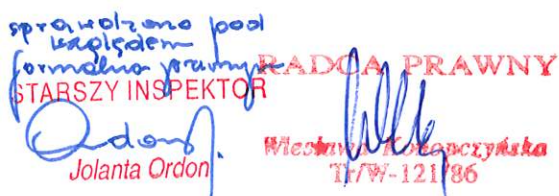 sprawdzono pod
względem
formalno prawnym
STARSZY INSPEKTOR
Ordon
Jolanta Ordon
RADCA PRAWNY
Wiesława Konopczyńska
Tr/W-121/86